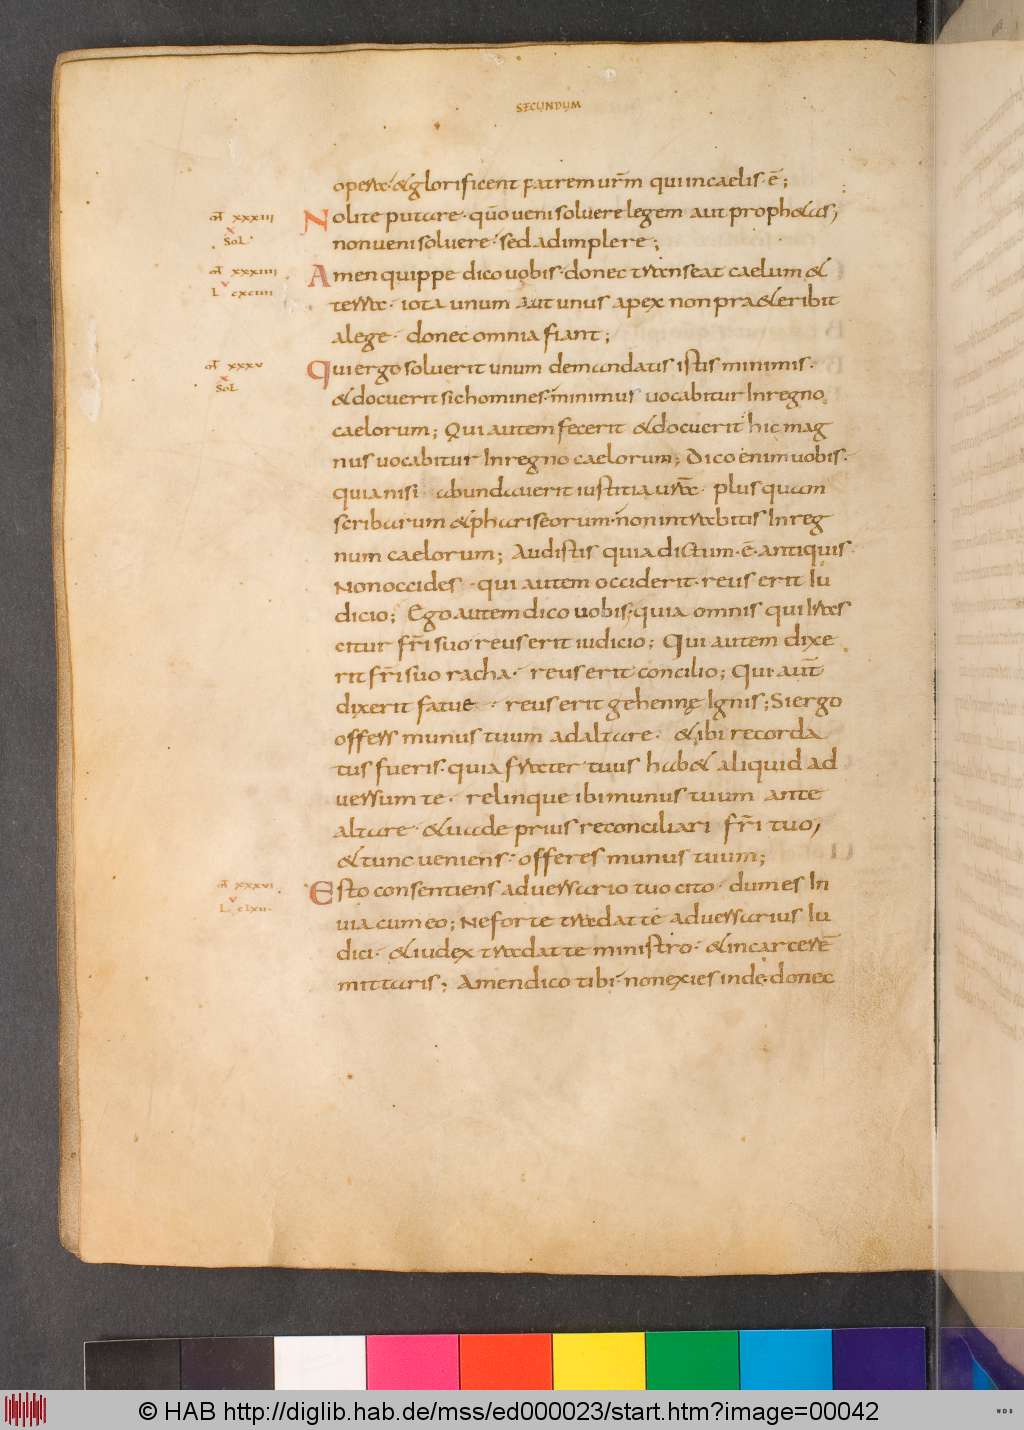 SECUNDUM
opera & glorificent patrem urm̄ qui in caelis ē;
mt xxxiii
x
Sol
Nolite putare quō veni solvere legem aut proph&as,
non veni solvere sed adimplere;
mt xxxiiii
v
L cxciiii
Amen quippe dico vobis donec transeat caelum &
terra iota unum aut unus apex non pra&eribit
alege donec omnia fiant;
mt xxxv
x
Sol
Qui ergo solverit unum demandatis istis minimis
& docuerit sic homines minimus vocabitur In regno
caelorum; Qui autem fecerit & docuerit hic mag
nus vocabitur In regno caelorum; Dico enim vobis
quia nisi abundaverit iustitia vrā plus quam
scribarum & phariseorum non intrabitis In reg
num caelorum; Audistis quia dictum ē antiquis
Non occides qui autem occiderit reus erit Iu
dicio; Ego autem dico vobis quia omnis qui Iras
citur fr̄i suo reus erit iudicio; Qui autem dixe
rit fr̄i suo racha reus erit concilio; Qui aut̄
dixerit fatue reus erit gehennę Ignis; Si ergo
offers munus tuum ad altare & ibi recorda
tus fueris quia frater tuus hab& aliquid ad
versum te relinque ibi munus tuum ante
altare & vade prius reconciliari fr̄i tuo,
& tunc veniens offeres munus tuum;
mt xxxvi
v
L clxii
Esto consentiens adversario tuo cito dum es In
via cum eo; Ne forte tradat te adversarius Iu
dici & iudex tradat te ministro & in carcerē
mittaris; Amen dico tibi non exies inde donec
© HAB http://diglib.hab.de/mss/ed000023/start.htm?image=00042